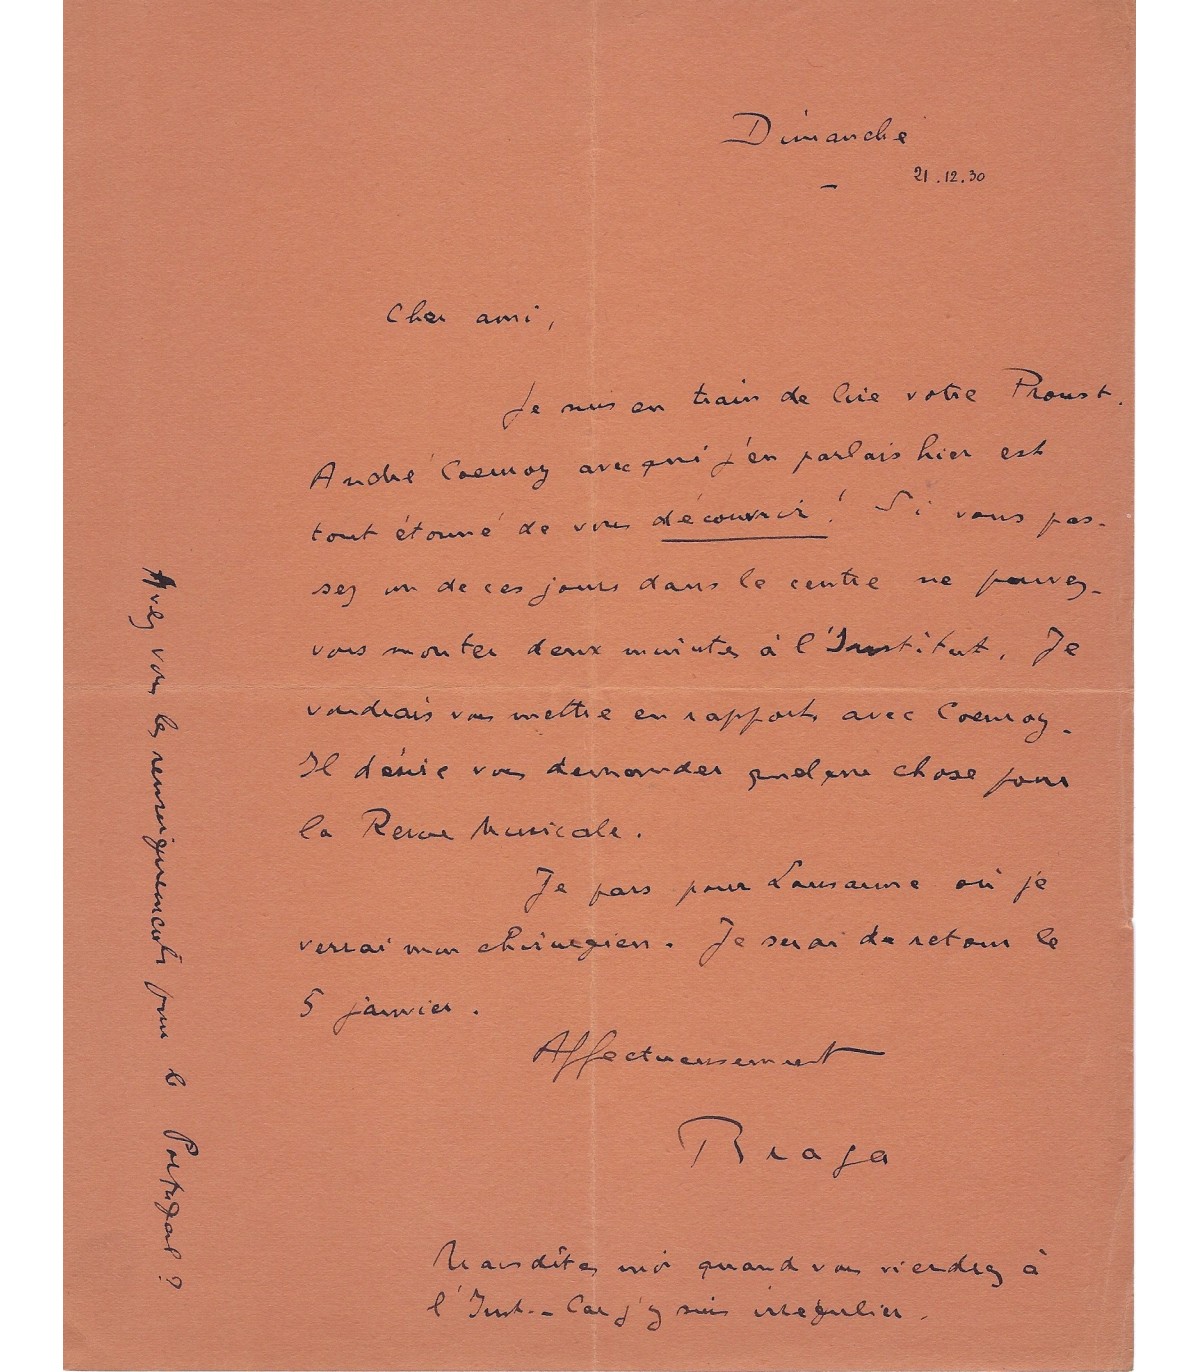 Dimanche
21.12.30
Cher ami,
Je suis en train de lire votre Proust.
André Coeuroy avec qui j'en parlais hier est
tout étonné de vous découvrir ! Si vous pas-
sez un de ces jours dans le centre ne pouvez-
vous monter deux minutes à l'Institut. Je
voudrais vous mettre en rapports avec Coeuroy.
Il désire vous demander quelque chose pour
la Revue Musicale.
Je pars pour Lausanne où je
verrai mon chirurgien. Je serai de retour le
5 janvier.
Affectueusement
Braga
Mais dîtes moi quand vous viendrez à
l'Inst.- Car j'y suis irrégulier.
Avez vous les renseignements pour le Portugal ?